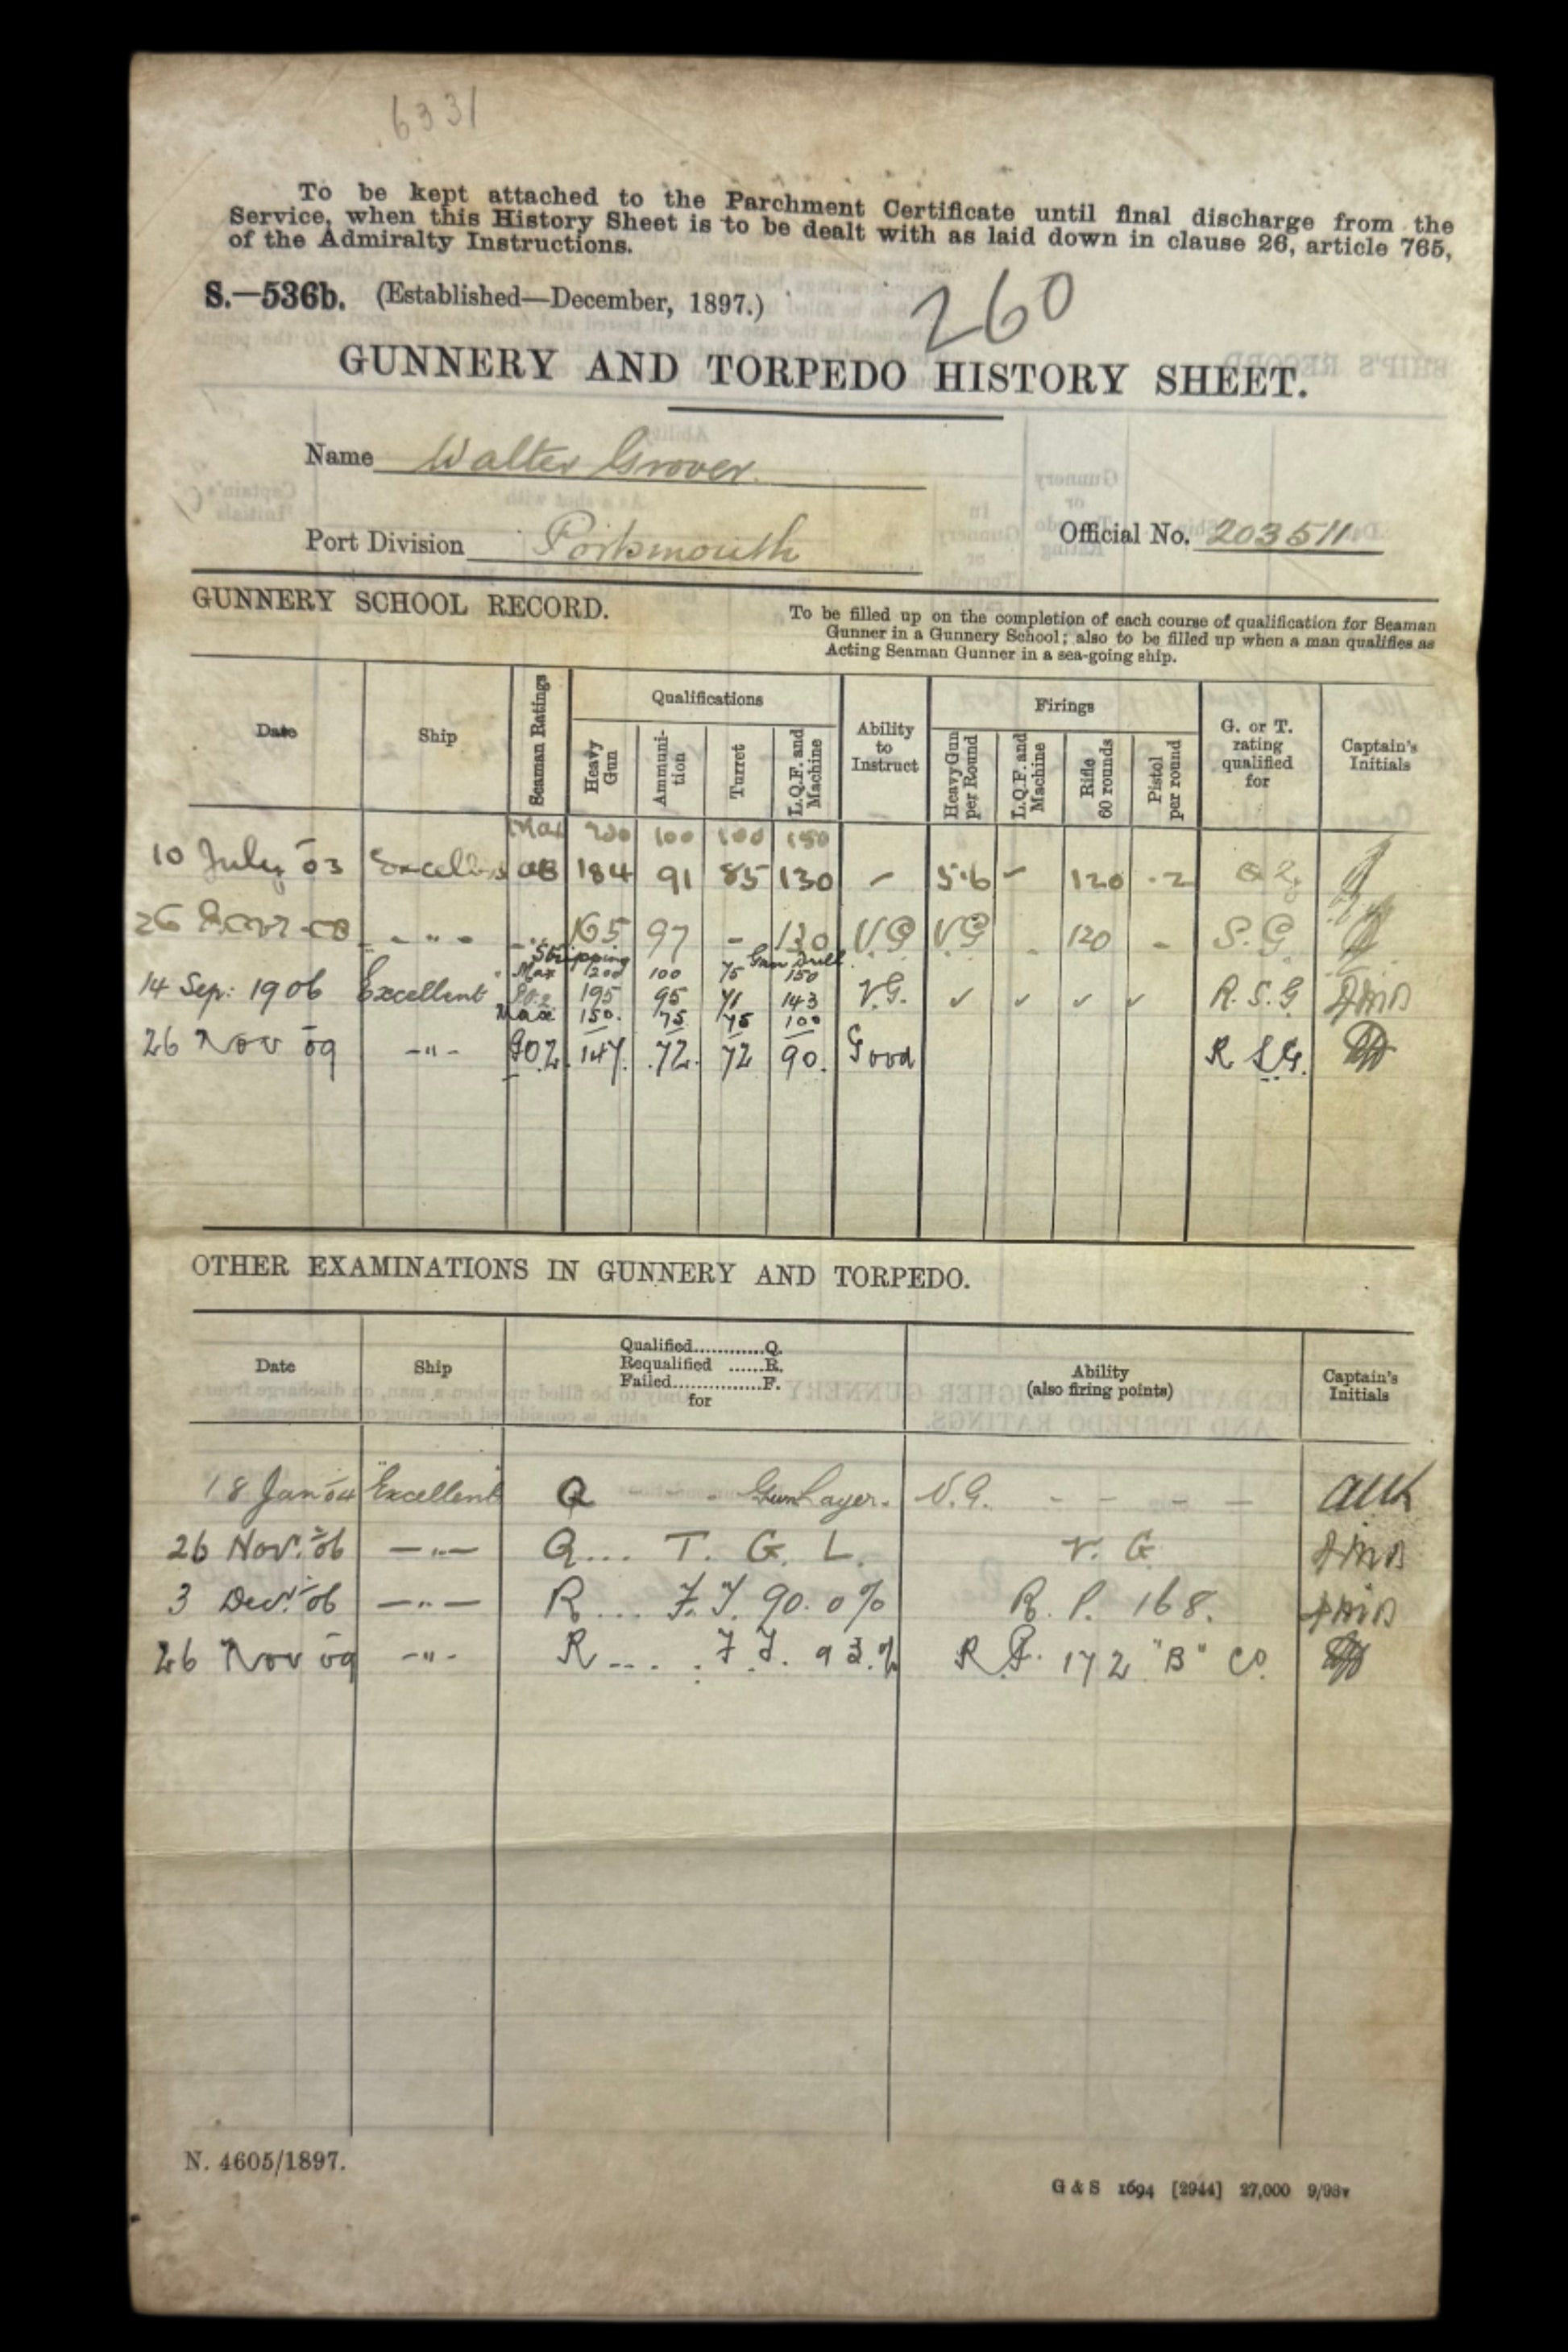 6331
To be kept attached to the Parchment Certificate until final discharge from the
Service, when this History Sheet is to be dealt with as laid down in clause 26, article 765,
of the Admiralty Instructions.
S.—536b. (Established—December, 1897.)
260
GUNNERY AND TORPEDO HISTORY SHEET.
Name Walter Grover.
Port Division Portsmouth Official No. 203511
GUNNERY SCHOOL RECORD.
To be filled up on the completion of each course of qualification for Seaman
Gunner in a Gunnery School; also to be filled up when a man qualifies as
Acting Seaman Gunner in a sea-going ship.
Date Ship Seaman Ratings Qualifications Heavy Gun Ammunition Turret L.Q.F. and Machine Ability to Instruct Firings Heavy Gun per Round L.Q.F. and Machine Rifle 60 rounds Pistol per round G. or T. rating qualified for Captain's Initials
Max 200 100 100 150
10 July 03 Excellent AB 184 91 85 130 - 5.6 - 120 .2
26 - " - 165 97 - 130 V.G VG - 120 - S.G
Stripping Gun Drill
Max 200 100 75 150
14 Sep: 1906 Excellent PO2 195 95 71 143 V.G. ✓ ✓ ✓ ✓ R.S.G
Max 150. 75 75 100
26 Nov 09 -"- PO2 147. 72. 72 90. Good R SG.
OTHER EXAMINATIONS IN GUNNERY AND TORPEDO.
Date Ship Qualified............Q. Requalified ......R. Failed...............F. for Ability (also firing points) Captain's Initials
18 Jan 04 "Excellent" Q - - - Gun Layer. V.G. - - - - -
26 Nov: 06 —"— Q... T. G. L. V. G
3 Dec: 06 —"— R.... F.T. 90.0% R. P. 168.
26 Nov 09 -"- R.... F.T. 93.% R P. 172 "B" Co.
N. 4605/1897.
G & S 1694 [2944] 27,000 9/98v